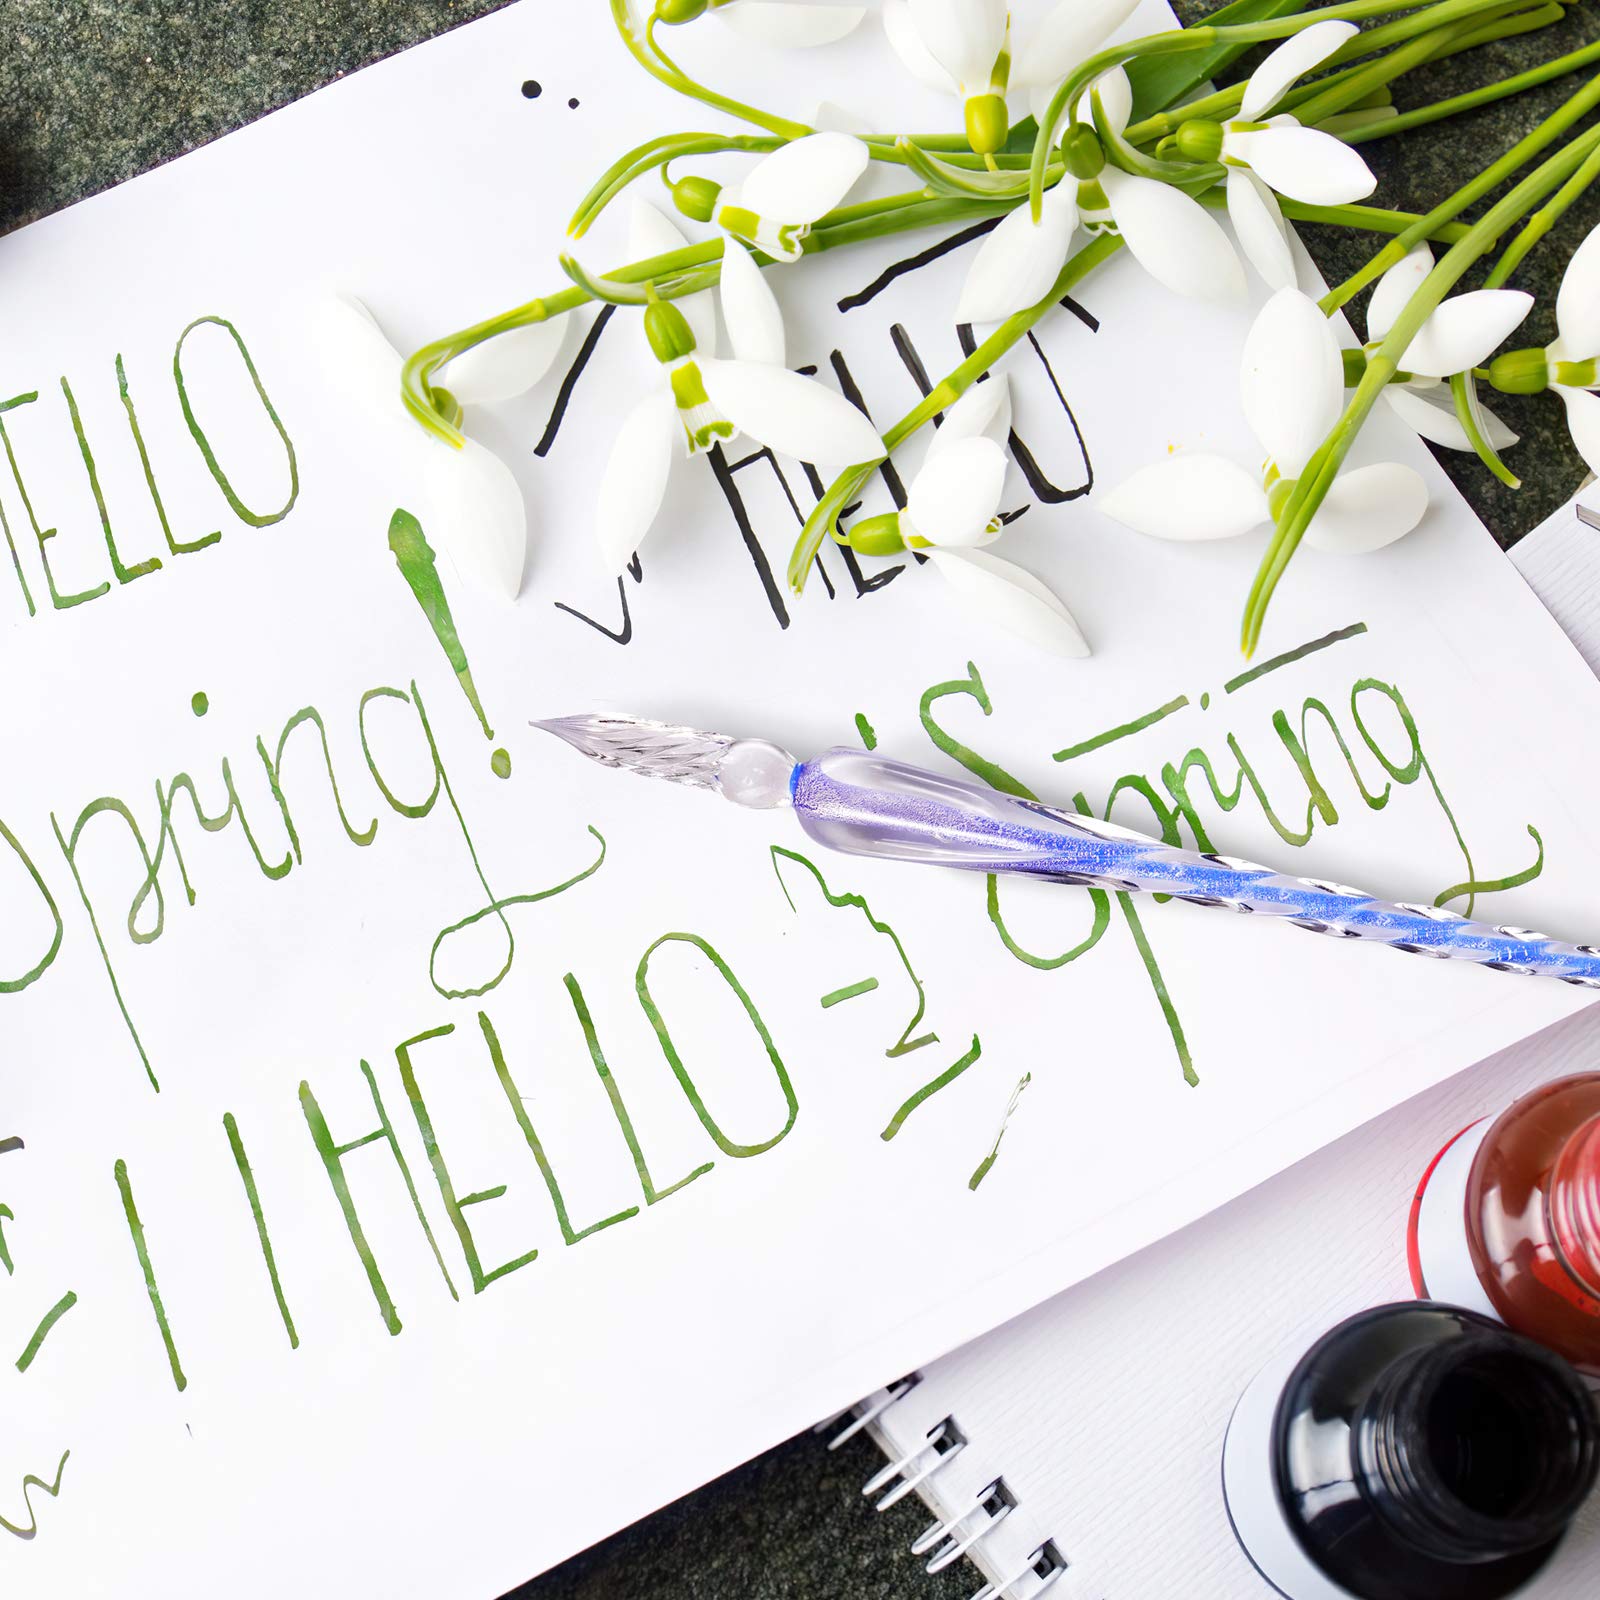 HELLO
HELLO
Spring!
Spring
HELLO